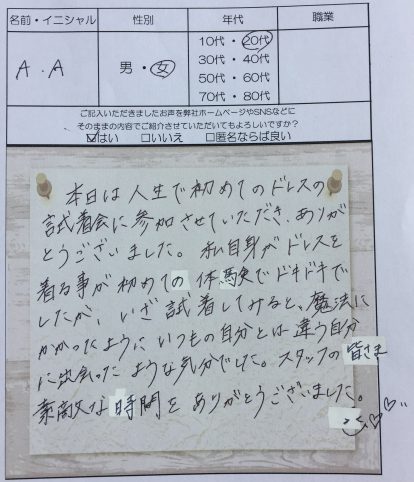 名前・イニシャル 性別 年代 職業
A.A 男・女 10代・20代
30代・40代
50代・60代
70代・80代
ご記入いただきましたお声を弊社ホームページやSNSなどに
そのままの内容でご紹介させていただいてもよろしいですか?
☑はい □いいえ □匿名ならば良い
本日は人生で初めてのドレスの
試着会に参加させていただき、ありが
とうございました。私自身がドレスを
着る事が初めての体験でドキドキで
したが、いざ試着してみると、魔法に
かかったようにいつもの自分とは違う自分
に出会ったような気分でした。スタッフの皆さま
素敵な時間をありがとうございました。